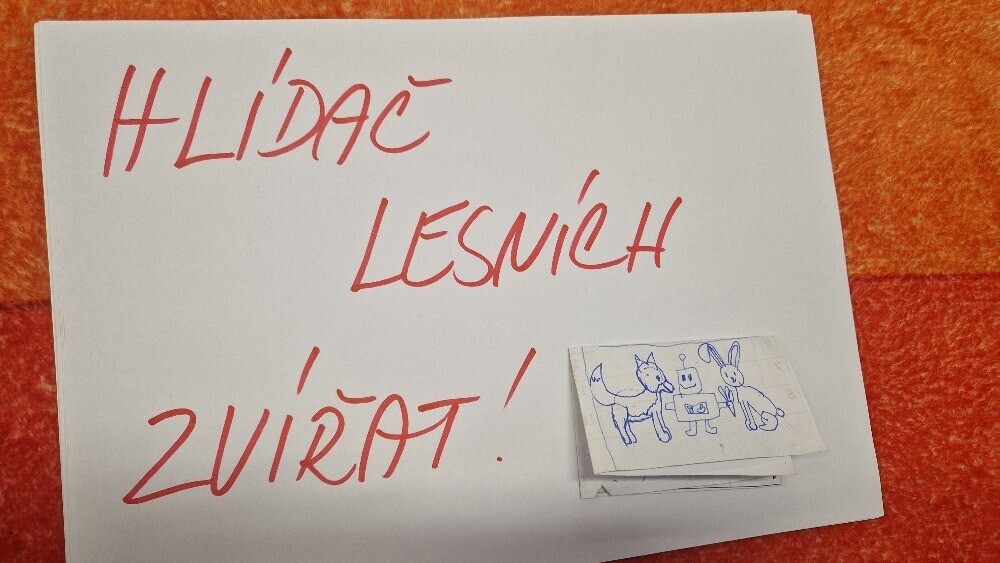 HLÍDAČ
LESNÍCH
ZVÍŘAT!